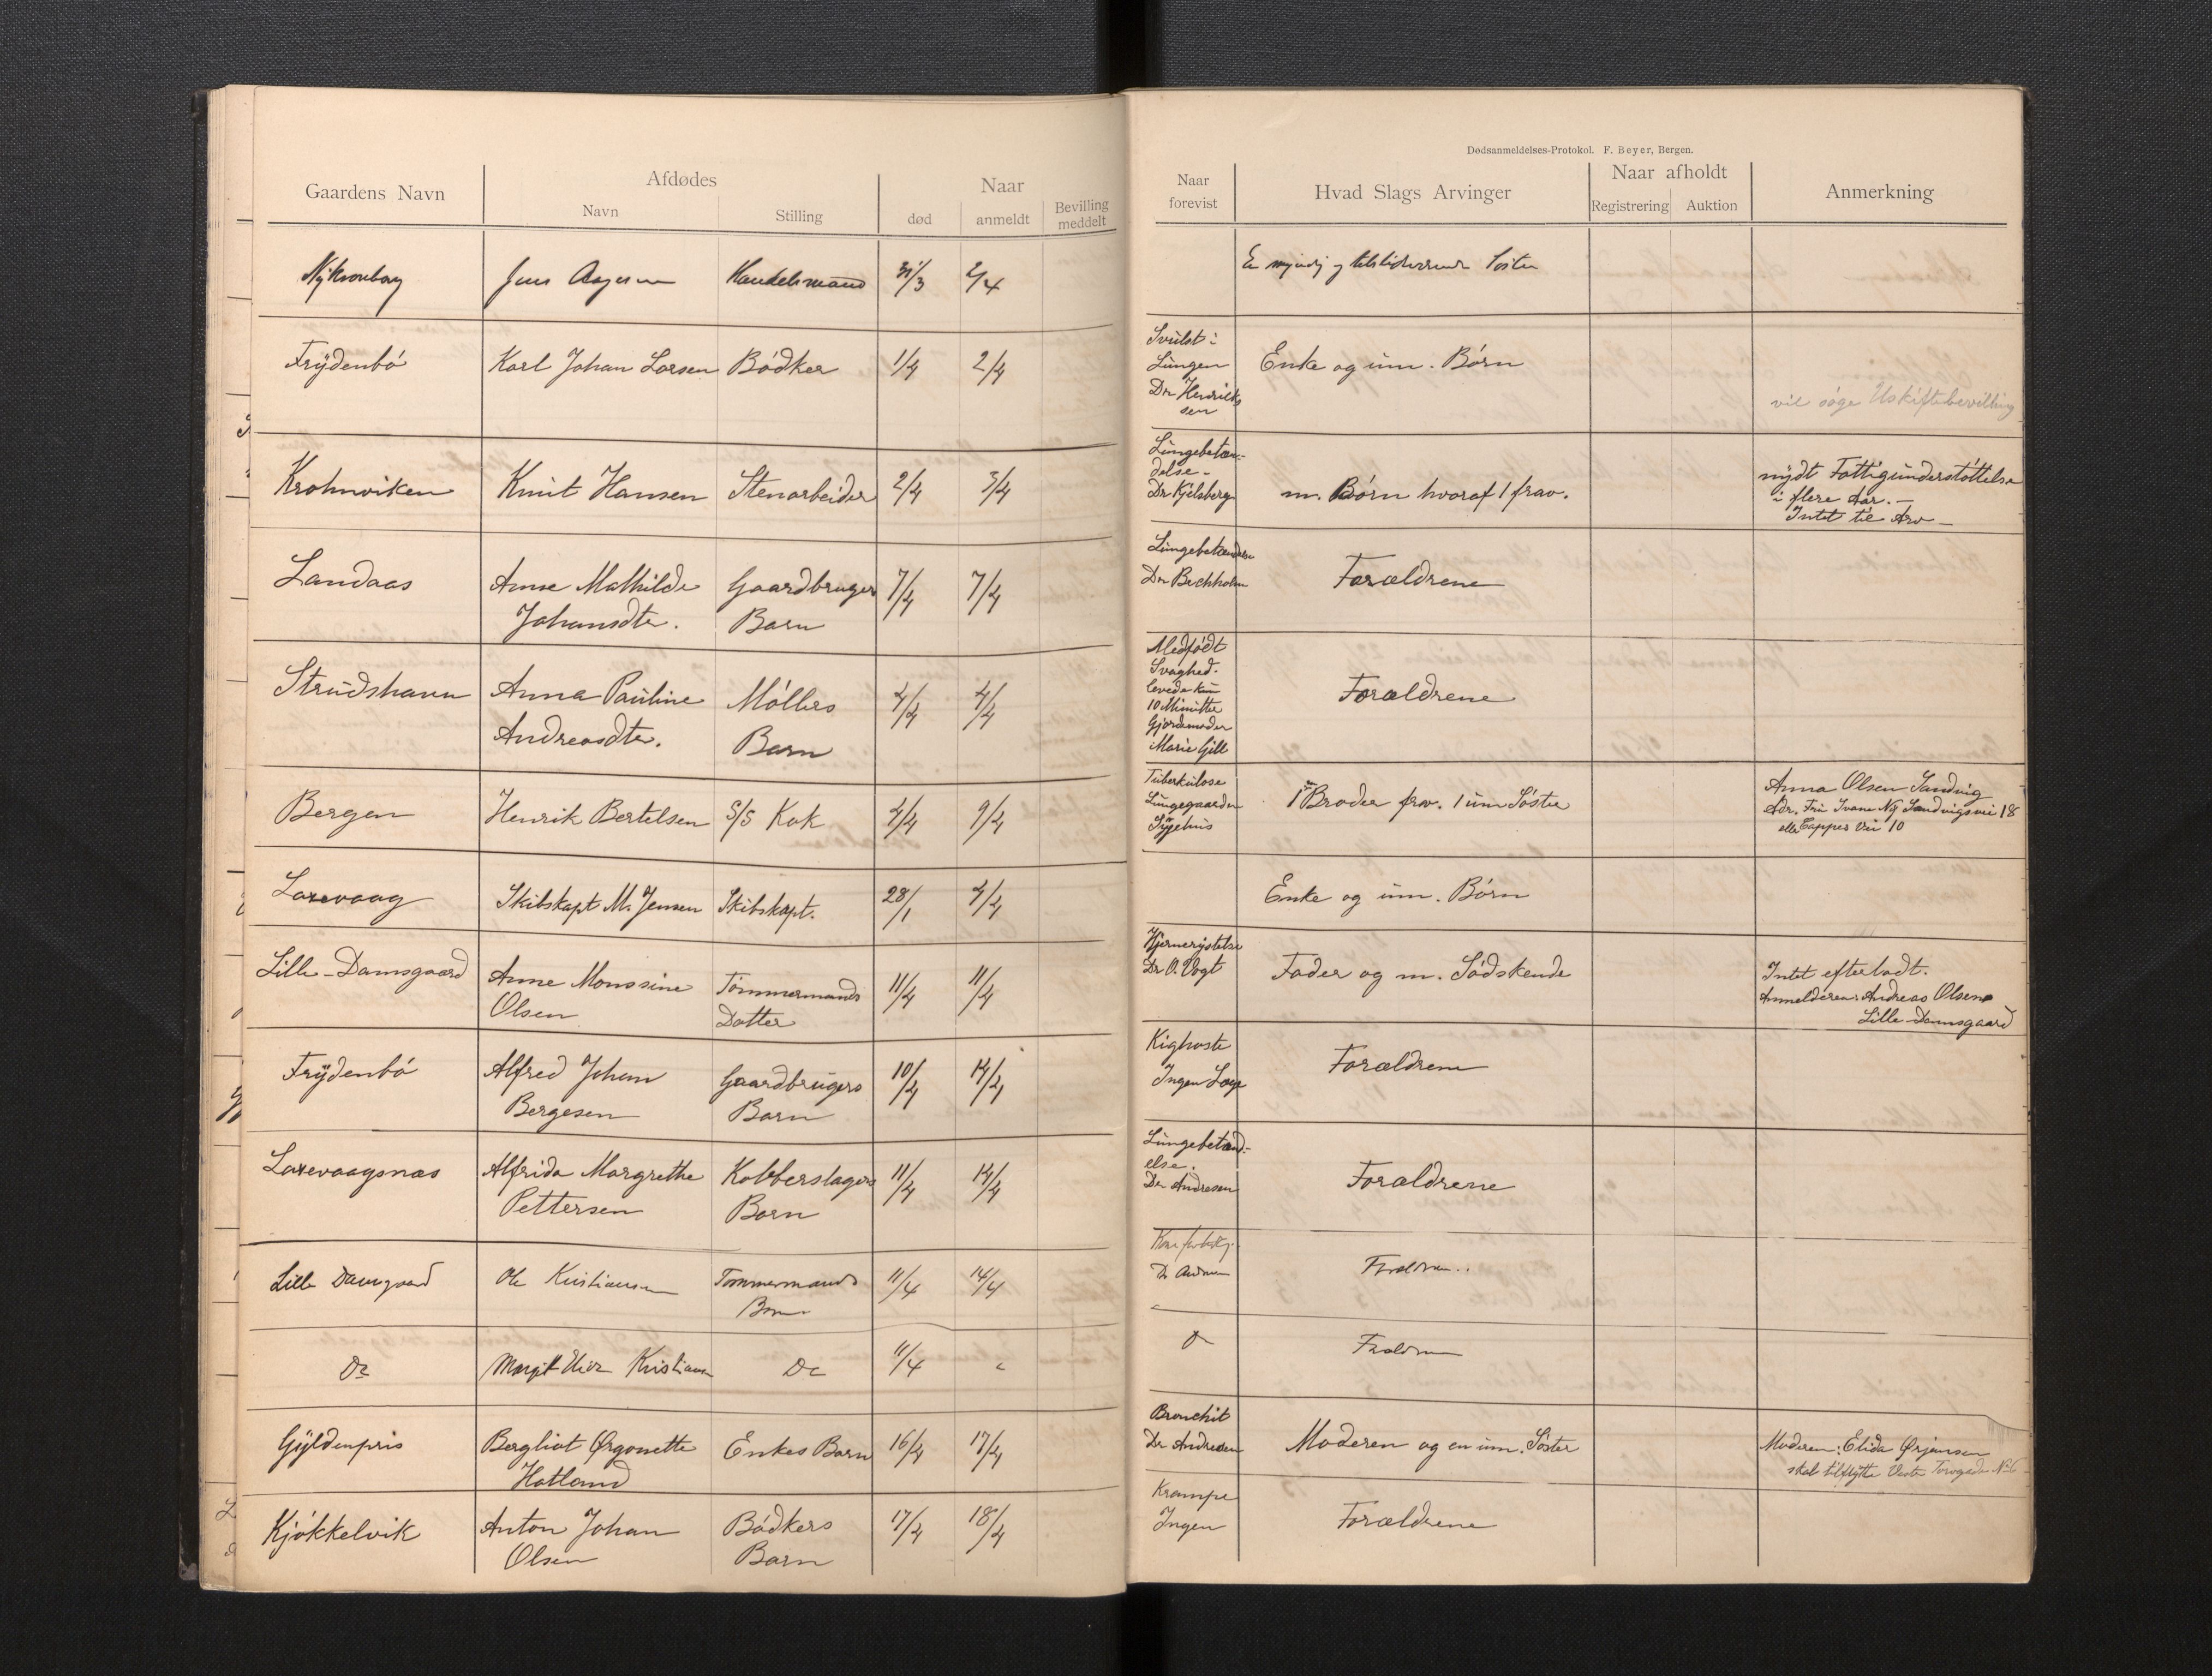 Dødsanmeldelses-Protokol. F. Beyer, Bergen.
Gaardens Navn Afdødes Naar Bevilling meddelt
Navn Stilling død anmeldt
Naar forevist Hvad Slags Arvinger Naar afholdt Anmerkning
Registrering Auktion
Jens Handelsmand 31/3 2/4 En myndig Søster
Frydenbö Karl Johan Larsen Bödker 1/4 2/4
Svulst i
Lungen
Dr Henrik
sen
Enke og um. Börn
vil söge Uskiftebevilling
Krohnviken Knut Hansen Stenarbeider 2/4 3/4
Lungebetæn-
delse -
Dr Kjelsberg
m. Börn hvoraf 1 frav.
nydt Fattigunderstöttelse
i flere Aar. -
Intet til Arv -
Landaas Anne Mathilde Gaardbruger 7/4 7/4
Johansdtr. Barn
Lungebetændelse
Forældrene
Strudshavn Anna Pauline Möllers 4/4 4/4
Andreasdtr. Barn
Medfödt
Svaghed.
levede kun
10 Minutter
Gjordemoder
Marie Gill
Forældrene
Bergen Henrik Bertelsen S/S Kok 4/4 9/4
Tuberkulose
Lungegaarden
Sygehus
1 Broder frav. 1 um Söster
Anna Olsen Sandvig
Adr. Fru Ivane Ny Sandvigsvei 18
eller Cappes Vei 10
Laxevaag Skibskapt M. Jensen Skibskapt. 28/1 4/4
Enke og um. Börn
Lille-Damsgaard Anne Monssine Tömmermands 11/4 11/4
Olsen Datter
Hjernerystelse
Dr O. Vogt
Fader og m. Södskende
Intet efterladt.
Anmelderen: Andreas Olsen
Lille Damsgaard
Frydenbö Alfred Johan Gaardbrugers 10/4 14/4
Bergesen Barn
Kighoste
Ingen Læge
Forældrene
Laxevaagsnæs Alfrida Margrethe Kobberslagers 11/4 14/4
Pettersen Barn
Lungebetænd-
else.
Dr Andresen
Forældrene
Lille Damsgaard Ole Kristiansen Tømmermands 11/4 14/4
Barn
Dr Andresen
Forældrene
Do Margit Kristiansen Do 11/4
Do
Forældrene
Gyldenpris Bergliot Ørgonette Enkes Barn 16/4 17/4
Hatland
Bronchit
Dr Andresen
Moderen og en um. Söster
Moderen: Elida Ørjansen
skal tilflytte Vestre Torvgade No 6
Kjökkelvik Anton Johan Bödkers 17/4 18/4
Olsen Barn
Krampe
Ingen
Forældrene